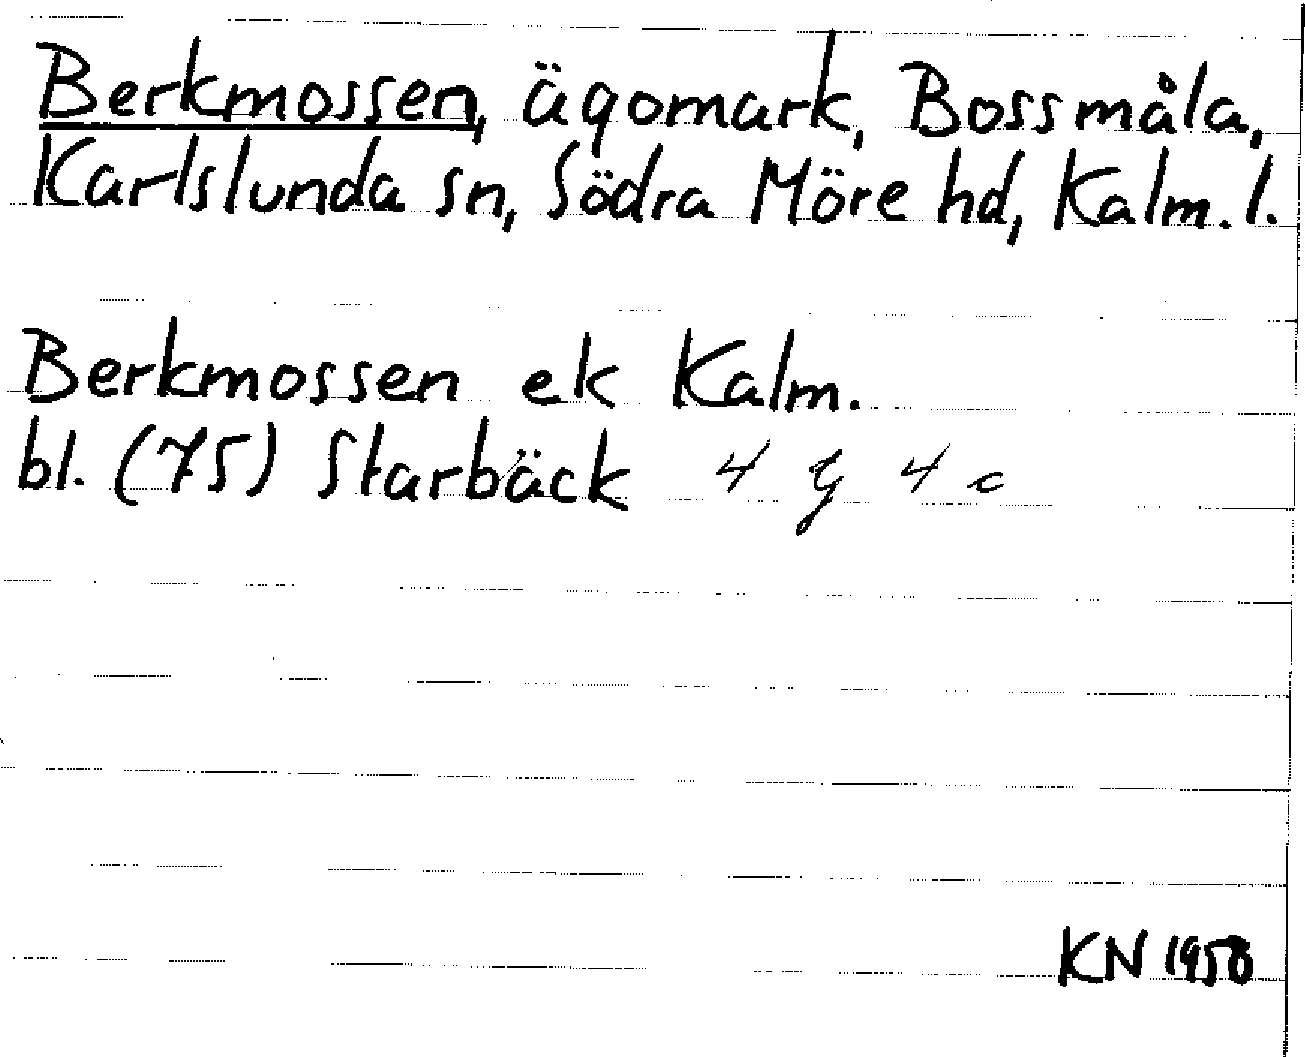 Berkmossen, ägomark, Bossmåla,
Karlslunda sn, Södra Möre hd, Kalm. l.
Berkmossen ek Kalm.
bl. (75) Starbäck 4 G 4 c
KN 1958